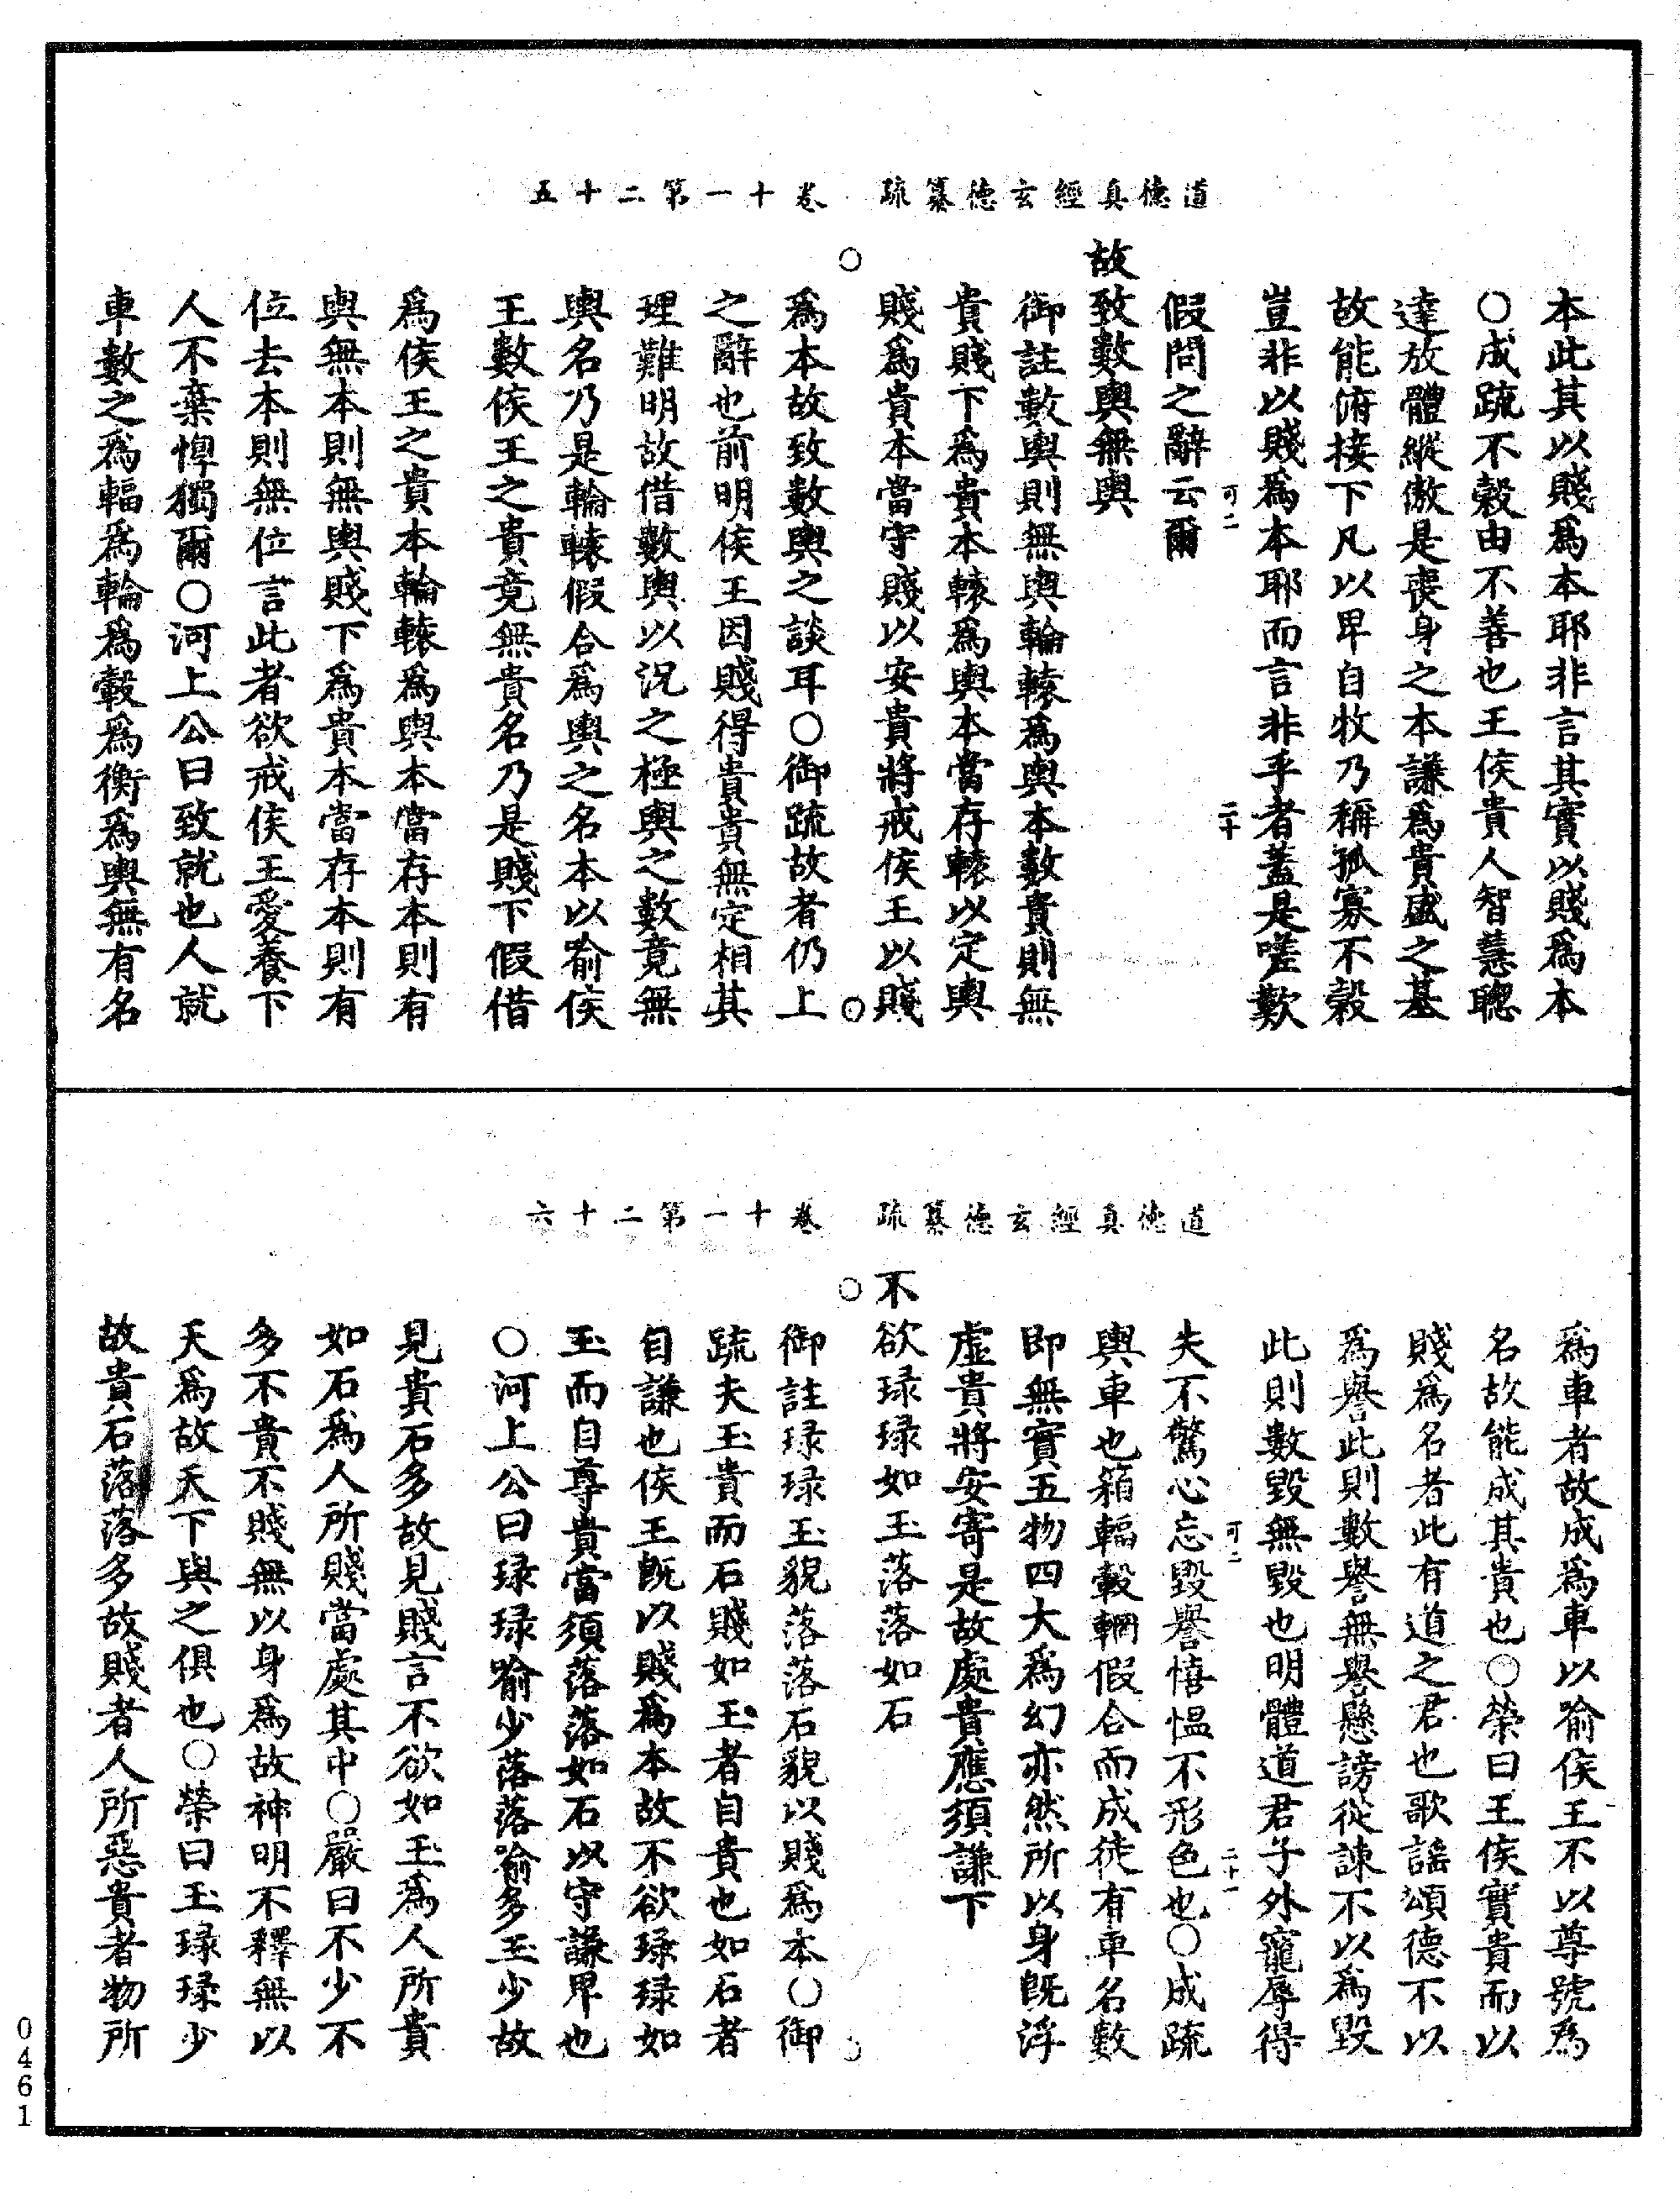 道德真經玄德纂疏　卷十一第二十五
本此其以賤爲本耶非言其實以賤爲本
○成疏不穀由不善也王侯貴人智慧聰
達放體縱傲是喪身之本謙爲貴盛之基
故能俯接下凡以卑自牧乃稱孤寡不穀
豈非以賤爲本耶而言非乎者蓋是嗟歎
可二　二十
假問之辭云爾
故致數輿無輿
御註數輿則無輿輪轅爲輿本數貴則無
貴賤下爲貴本轅爲輿本當存轅以定輿
賤爲貴本當守賤以安貴將戒侯王以賤
○　○
爲本故致數輿之談耳○御疏故者仍上
之辭也前明侯王因賤得貴貴無定相其
理難明故借數輿以況之極輿之數竟無
輿名乃是輪轅假合爲輿之名本以喻侯
王數侯王之貴竟無貴名乃是賤下假借
爲侯王之貴本輪轅爲輿本當存本則有
輿無本則無輿賤下爲貴本當存本則有
位去本則無位言此者欲戒侯王愛養下
人不棄惸獨爾○河上公曰致就也人就
車數之爲輻爲輪爲轂爲衡爲輿無有名
道德真經玄德纂疏　卷十一第二十六
爲車者故成爲車以喻侯王不以尊號爲
名故能成其貴也○榮曰王侯實貴而以
賤爲名者此有道之君也歌謠頌德不以
爲譽此則數譽無譽懸謗從諫不以爲毀
此則數毀無毀也明體道君子外寵辱得
可二　二十一
失不驚心忘毀譽憘慍不形色也○成疏
輿車也箱輻轂輞假合而成徒有車名數
即無實五物四大爲幻亦然所以身旣浮
虛貴將安寄是故處貴應須謙下
不欲琭琭如玉落落如石
○
御註琭琭玉貌落落石貌以賤爲本○御
疏夫玉貴而石賤如玉者自貴也如石者
自謙也侯王旣以賤爲本故不欲琭琭如
玉而自尊貴當須落落如石以守謙卑也
○河上公曰琭琭喻少落落喻多玉少故
見貴石多故見賤言不欲如玉爲人所貴
如石爲人所賤當處其中○嚴曰不少不
多不貴不賤無以身爲故神明不釋無以
天爲故天下與之俱也○榮曰玉琭琭少
故貴石落落多故賤者人所惡貴者物所
0461